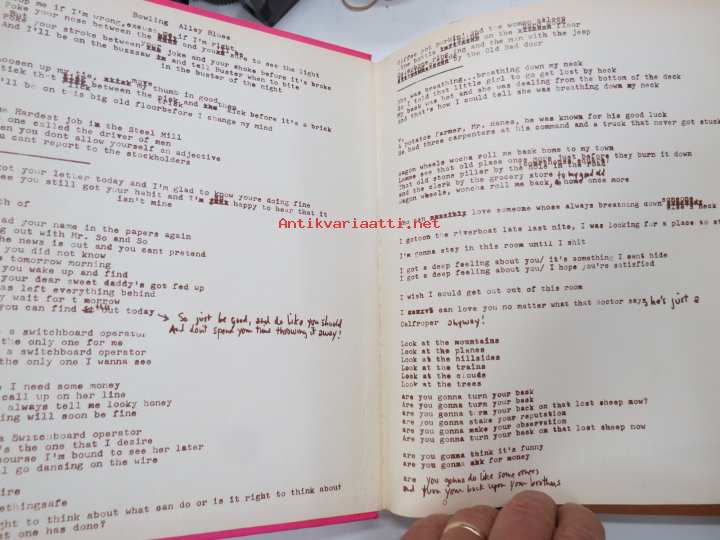 Bowling Alley Blues
me if I'm wrong, excuse if I'm right
Poke your nose between the and you're sure to see the light
But your stroke between your joke and your smoke before it's broke
And I'll be on the buzzsaw and tell Buster when to bite
in the buster of the night
up my tie, move my thumb in good
between the pick and the tick before it's a brick
be on t is big old floor before I change my mind
Hardest job in the Steel Mill
one called the driver of men
you dont allow yourself an adjective
cant report to the stockholders
got your letter today and I'm glad to know youre doing fine
see you still got your habit and I'm happy to hear that it
isn't mine
th of
your name in the papers again
g out with Mr. So and So
he news is out and you cant pretend
you did not know
tomorrow morning
you wake up and find
your dear sweet daddy's got fed up
has left everything behind
wait for t morrow
you can find out today
So just be good, and do like you should
And don't spend your time throwing it away!
a switchboard operator
the only one for me
a switchboard operator
the only one I wanna see
I need some money
call up on her line
always tell me looky honey
ing will soon be fine
a Switchboard operator
's the one that I desire
course I'm bound to see her later
ll go dancing on the wire
ire
ethingsafe
ght to think about what can do or is it right to think about
at one has done?
and the woman saloon
and the man with the jeep
by the Old Bad door
She was breathing...breathing down my neck
I told that little girl to go get lost by heck
My back was hot and she was dealing from the bottom of the deck
And that's how I could tell she was breathing down my neck
A potatoe farmer, Mr. Hanes, he was known for his good luck
He had three carpenters at his command and a truck that never got stuck
Wagon wheels woncha roll me back home to my town
Lemme see that old place once more just before they burn it down
That old stone pillar by the hole in the road
and the clerk by the grocery store to my good old
wagon wheels, woncha roll me back, home once more
love someone whose always breathing down neck
I gotoon the riverboat late last nite, I was looking for a place so
I'm gonna stay in this room until I shit
I got a deep feeling about you/ it's something I cant hide
I got a deep feeling about you/ I hope you're satisfied
I wish I could get out out of this room
I can love you no matter what that doctor says, he's just a
Calfroper anyway!
Look at the mountains
Look at the planes
Look at the hillsides
Look at the trains
Look at the clouds
Look at the trees
are you gonna turn your back
are you gonna turn your back
are you gonna turn your back on that lost sheep now?
are you gonna stake your reputation
are you gonna make your observation
Are you gonna turn your back on that lost sheep now
are you gonna think it's funny
are you gonna ask for money
are you gonna do like some others
and turn your back upon your brothers
Antikvariaatti.net